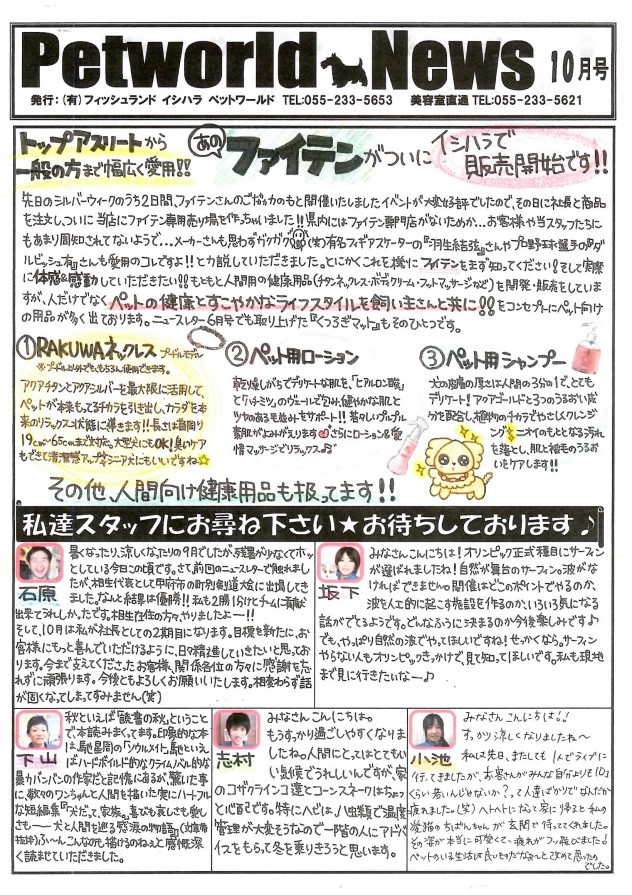 Petworld News 10月号
発行：(有)フィッシュランド イシハラ ペットワールド TEL:055-233-5653 美容室直通TEL:055-233-5621
トップアスリートから
一般の方まで幅広く愛用!!
あのファイテンがついに
イシハラで
販売開始です!!
先日のシルバーウィークのうち2日間、ファイテンさんのご協力のもと開催いたしましたイベントが大変好評でしたので、その日に社長と商品
を注文しついに当店にファイテン専用売り場を作っちゃいました!!県内にはファイテン専門店がないためか…お客様や当スタッフたちに
もあまり周知されてないようで…メーカーさんも思わずガクガク(笑)有名フィギアスケーターの『羽生結弦』さんやプロ野球選手の『ダ
ルビッシュ有』さんも愛用のコレですよ!!とか説していただきました。とにかくこれを機にファイテンをまず知ってください!そして実際
に体感&感動していただきたい!!もともと人間用の健康用品(チタンネックレス・ボディクリーム・フットマッサージなど)を開発・販売をしていま
すが、人だけでなくペットの健康とすこやかなライフスタイルを飼い主さんと共に!!をコンセプトにペット向け
の用品が多く出ております。ニュースレター6月号でも取り上げた『くつろぎマット』もそのひとつです。
①RAKUWAネックレス プードルモデル
※プードル以外でももちろん使用できます。
アクアチタンとアクアシルバーを最大限に活用して、
ペットが本来もってるチカラを引き出し、カラダを本
来のリラックス状態に導きます!!長さは首周り
19cm~65cmまで対応。大型犬にもOK!臭いケア
もできて清潔感アップ♪シニア犬にもいいですね☆
②ペット用ローション
乾燥しがちでデリケートな肌を、「ヒアルロン酸」
と「ケイ・ミツ」のヴェールで包み、健やかな肌と
ツヤのある毛並みをサポート!!若々しいプルプル
素肌がよみがえります さらにローション&愛
情マッサージでリラックス♪
③ペット用シャンプー
犬の指層の厚さは人間の3分の1で、とても
デリケート!アクアゴールドと3つのうるおい成
分を配合し、植物のチカラでやさしくクレンジ
ング ニオイのもととなる汚れ
を落とし、肌と被毛のうるお
いをケアします!!
その他、人間向け健康用品も扱ってます!!
私達スタッフにお尋ね下さい★お待ちしております♪
石原
暑くなったり、涼しくなったりの9月でしたが、残暑が少なくてホッ
としている今日この頃です。さて、前回のニュースターで触れまし
たが、相生代表として甲府市の町別剣道大会に出場してき
ました。なんと結果は優勝!!私も2勝1分けとチームに貢献が
出来てうれしかったです。相生在住の方々、やりましたよー!!
そして、10月は私が社長としての2期目になります。目標を新たに、お
客様にもっと喜んでいただけるように、日々精進していきたいと思ってお
ります。今まで支えてくださったお客様、関係各位の方々に感謝を忘
れずに頑張ります。今後ともよろしくお願いいたします。相変わらず話
が固くなってしまってすみません(笑)
坂下
みなさんこんにちは!オリンピック正式種目にサーフィン
が選ばれましたね!自然が舞台のサーフィン。波がな
ければできません。開催はどこのポイントでやるのか、
波を人工的に起こす施設を作るのか、いろいろ気になる
話がでてるようです。どんなふうに決まるのか今後楽しみです♪
でも、やっぱり自然の波でやってほしいですね!せっかくなら、サーフィン
やらない人もオリンピックきっかけで、見て知ってほしいです。私も現地
まで見に行きたいなー♪
下山
秋といえば「読書の秋。」ということ
で本読みまくってます。印象的な本
は、馳星周の「ソウルメイト」。馳といえ
ばハードボイルド的なクライム/バトル的な
暴力バンバンの作家だと記憶にあるが、驚いた事
に、数々のワンちゃんと人間を描いた実にハートフル
な短編集『犬だって、家族。喜びも哀しさも愛し
さも――犬と人間を巡る感涙の物語』(文庫帯
抜粋)ふ～ん。こんなのも描けるのねぇと感慨深
く読ませていただきました。
志村
みなさんこんにちは。
もうすっかり過ごしやすくなりま
したね。人間にとってはとてもい
い気候でうれしいんですが、家
のコザクラインコ達とコーンスネークはちょっ
と心配です。特にヘビは、ハ虫類で温度
管理が大変そうなので一階の人にアドバ
イスをもらって冬を乗りきろうと思います。
小池
みなさんこんにちは!!
すっかり涼しくなりましたね～
私は先日、またしても1人でライブに
行ってきましたが、お客さんがみんな自分より も10こ
くらい若いんじゃないか?って人達ばかりで なんだか
疲れました。(笑) ヘトヘトになって家に帰ると 私の
愛猫のちぱんちゃんが玄関で待っててくれました。
その姿が本当に可愛くてい疲れがフッ飛びました!
ペットのいる生活は良いものだなぁ～と改めて思ったの
でした。